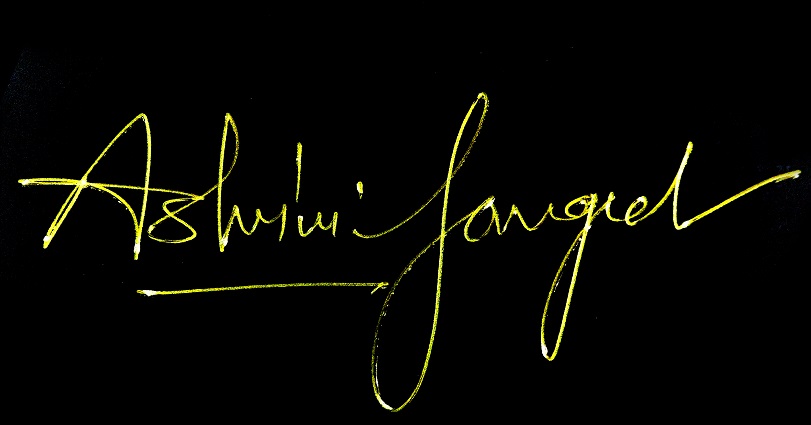 Ashvini Jangid